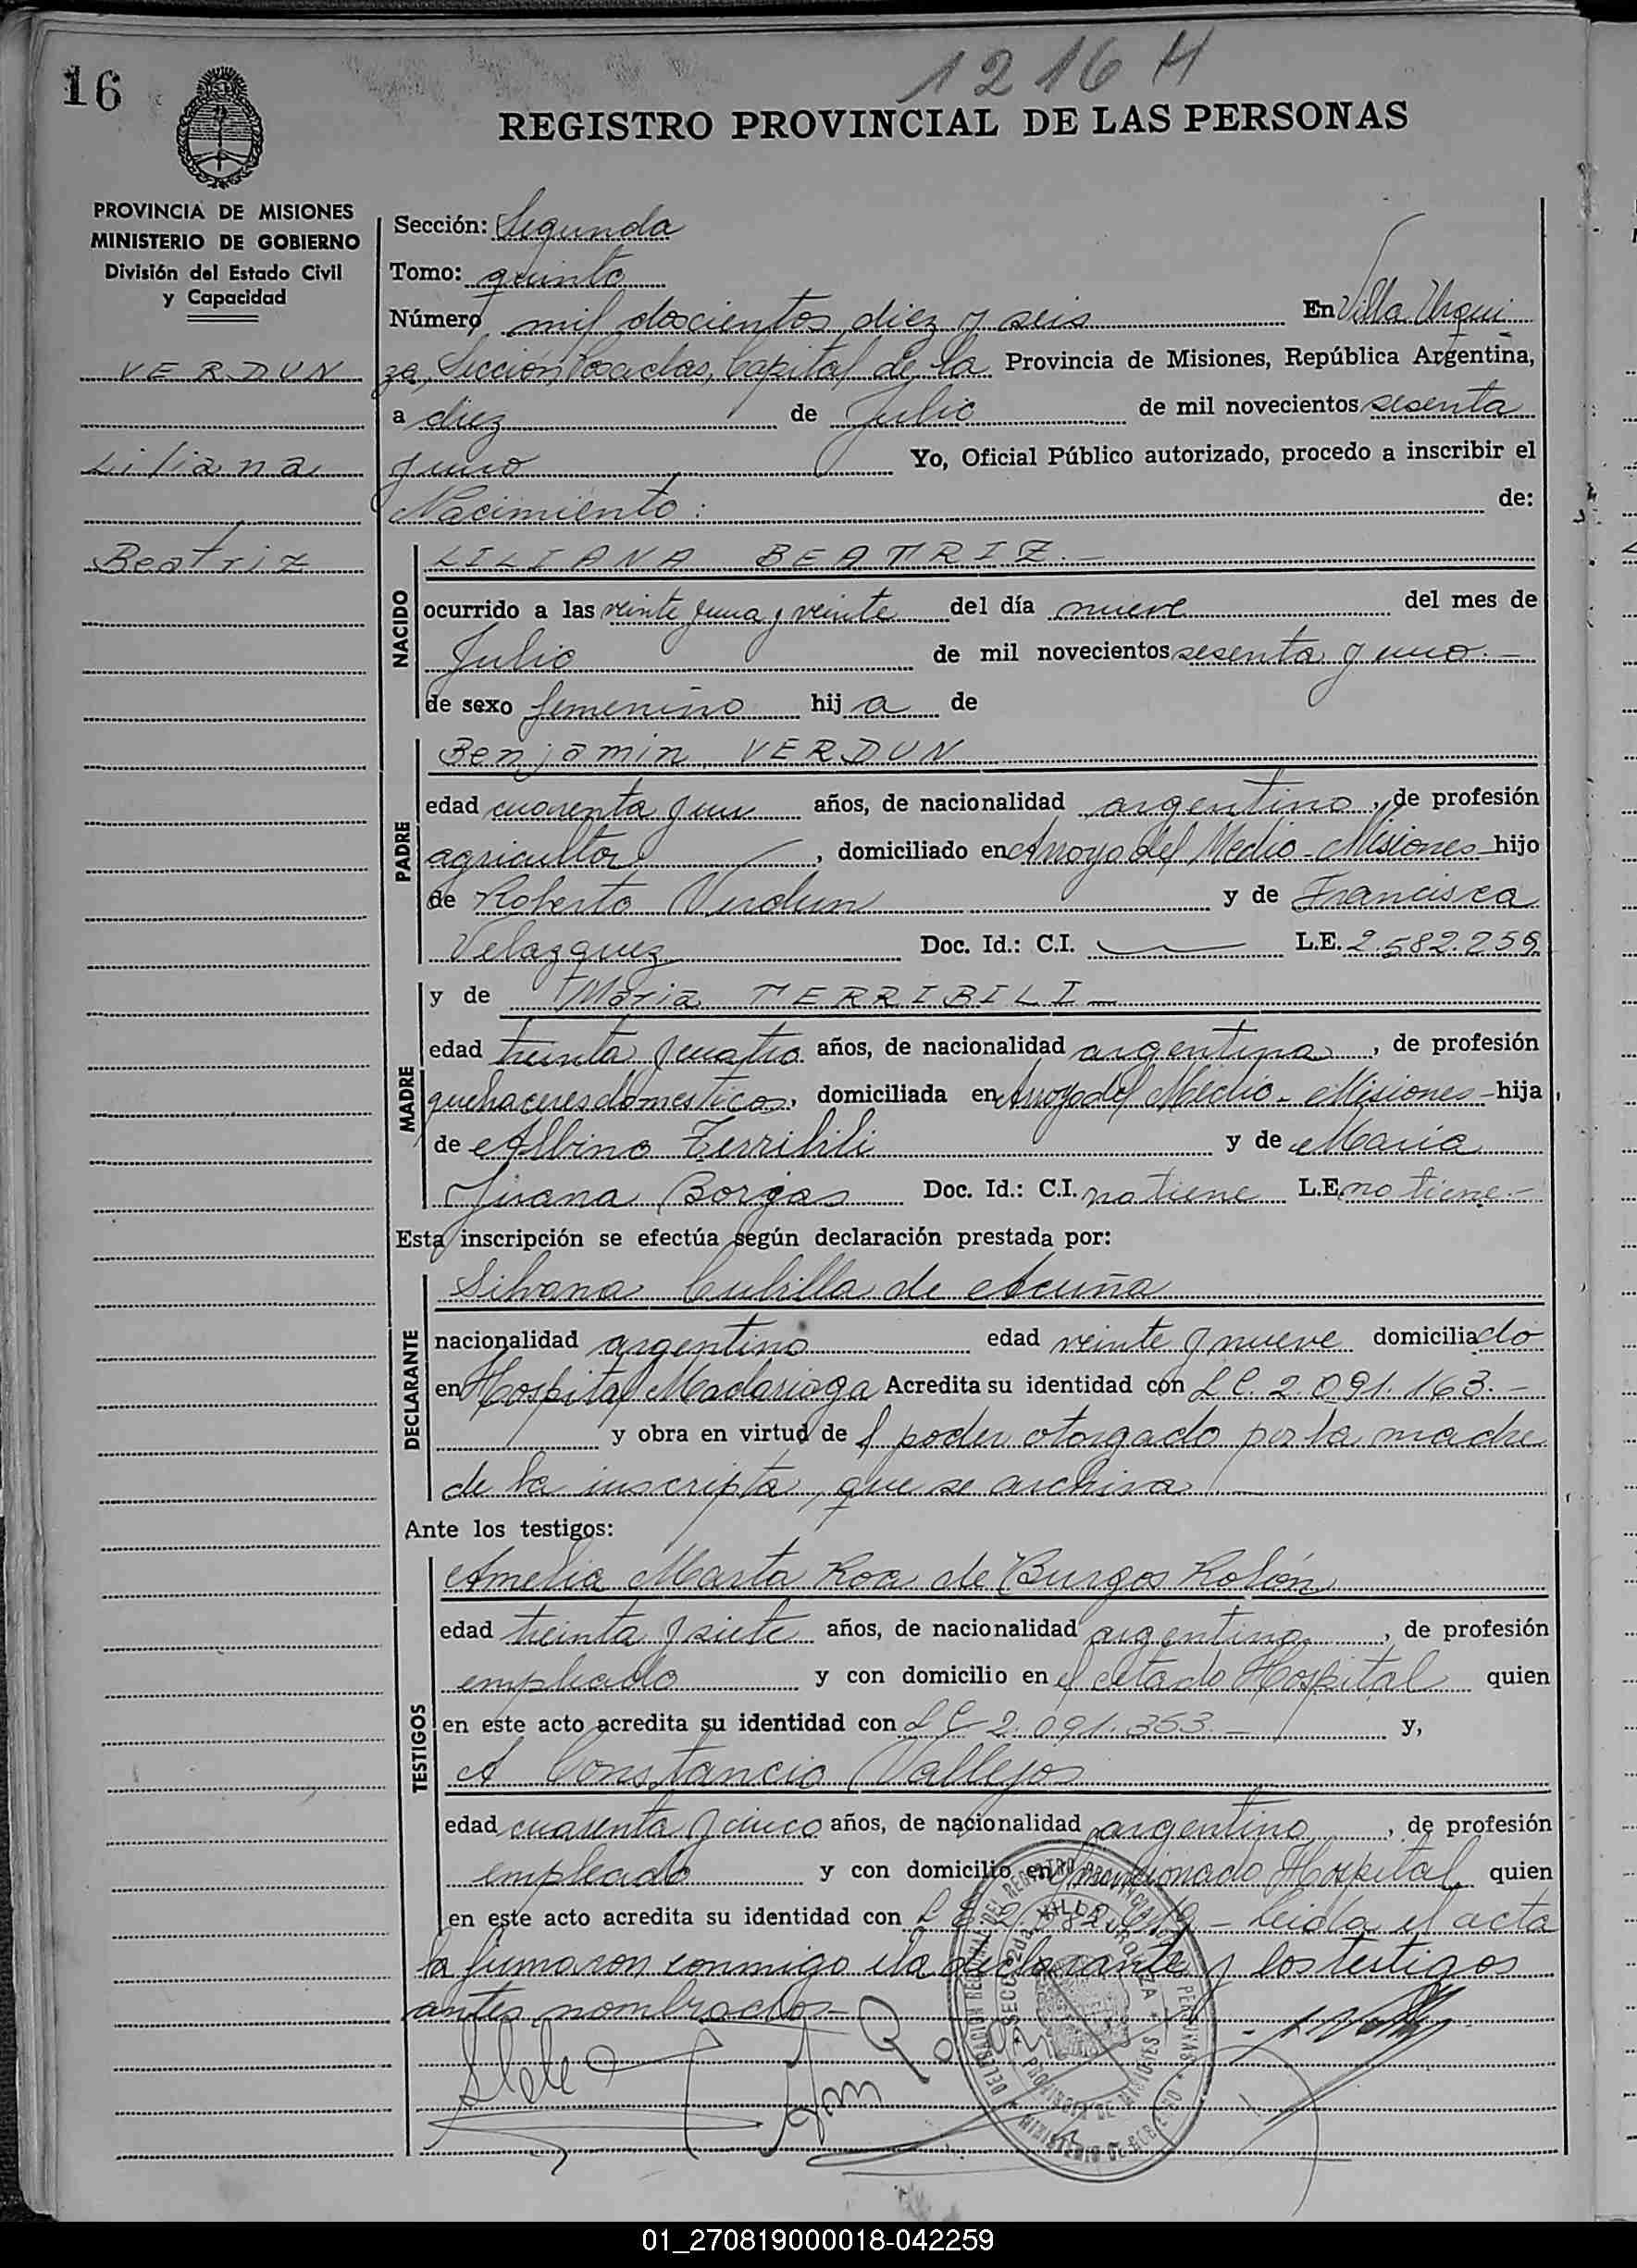 1216 H
16
REGISTRO PROVINCIAL DE LAS PERSONAS
PROVINCIA DE MISIONES
MINISTERIO DE GOBIERNO
División del Estado Civil
y Capacidad
VERDUN
Liliana
Beatriz
Sección: Segunda
Tomo: quinto
Número, mil doscientos diez y seis En Villa Urqui
za, Sección Posadas, Capital de la Provincia de Misiones, República Argentina,
a diez de Julio de mil novecientos sesenta
y uno Yo, Oficial Público autorizado, procedo a inscribir el
Nacimiento: de:
NACIDO
LILIANA BEATRIZ.-
ocurrido a las veinte y una y veinte del día nueve del mes de
Julio de mil novecientos sesenta y uno.-
de sexo femenino hija de
PADRE
Benjamin VERDUN
edad cuarenta y un años, de nacionalidad argentino, de profesión
agricultor, domiciliado en Arroyo del Medio - Misiones hijo
de Roberto Verdun y de Francisca
Velazquez Doc. Id.: C.I. L.E. 2.582.259
MADRE
y de Maria TERRIBILI-
edad treinta y cuatro años, de nacionalidad argentina, de profesión
quehaceres domesticos, domiciliada en Arroyo del Medio - Misiones - hija
de Albino Terribili y de Maria
Juana Borjas Doc. Id.: C.I. no tiene L.E. no tiene.-
Esta inscripción se efectúa según declaración prestada por:
DECLARANTE
Silvana Cubilla de Acuña
nacionalidad argentino edad veinte y nueve domiciliado
en Hospital Madariaga Acredita su identidad con L.C. 2.091.163.-
y obra en virtud de l poder otorgado por la madre
de la inscripta, que se archiva
Ante los testigos:
TESTIGOS
Amelia Marta Roa de Burgos Rolón
edad treinta y siete años, de nacionalidad argentino, de profesión
empleado y con domicilio en el citado Hospital quien
en este acto acredita su identidad con L C 2.091.363.- y,
A Constancio Vallejos
edad cuarenta y cinco años, de nacionalidad argentino, de profesión
empleado y con domicilio en mencionado Hospital quien
en este acto acredita su identidad con L E - Leida el acta
la firmaron conmigo la declarante y los testigos
antes nombrados-
DELEGACION REGIONAL DEL REGISTRO PROVINCIAL DE LAS PERSONAS
SECC. 2da. VILLA URQUIZA
PROVINCIA DE MISIONES
MINISTERIO DE GOBIERNO
01_270819000018-042259